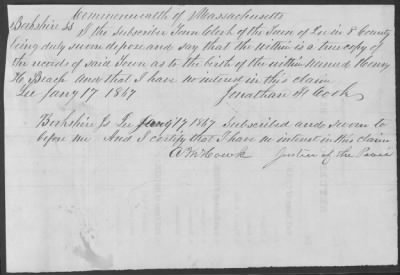 Commonwealth of Massachusetts
Berkshire Ss I the Subscriber Town Clerk of the Town of Lee in S County
being duly sworn depose and say that the within is a true copy of
the records of said Town as to the birth of the within named Henry
H. Beach And that I have no interest in this claim
Lee Jany 17 1867 Jonathan H Cook
Berkshire Ss Lee Jany 17 1867 Subscribed and sworn to
before me And I certify that I have no interest in this claim
Justice of the Peace